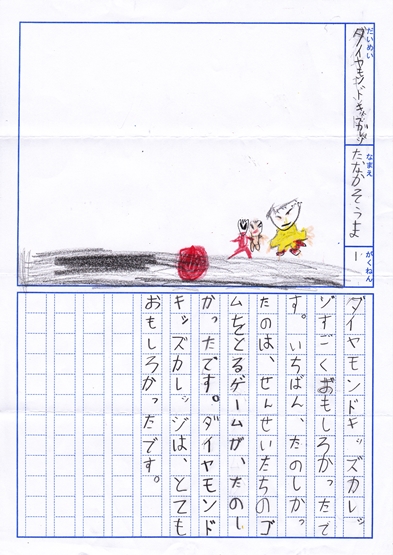 だいめい
ダイヤモンドキッズカレッジ
なまえ
たなかそうま
がくねん
1
ダイヤモンドキッズカレッ
ジすごくおもしろかったで
す。いちばん、たのしかっ
たのは、せんせいたちのゴ
ムをとるゲームが、たのし
かったです。ダイヤモンド
キッズカレッジは、とても
おもしろかったです。